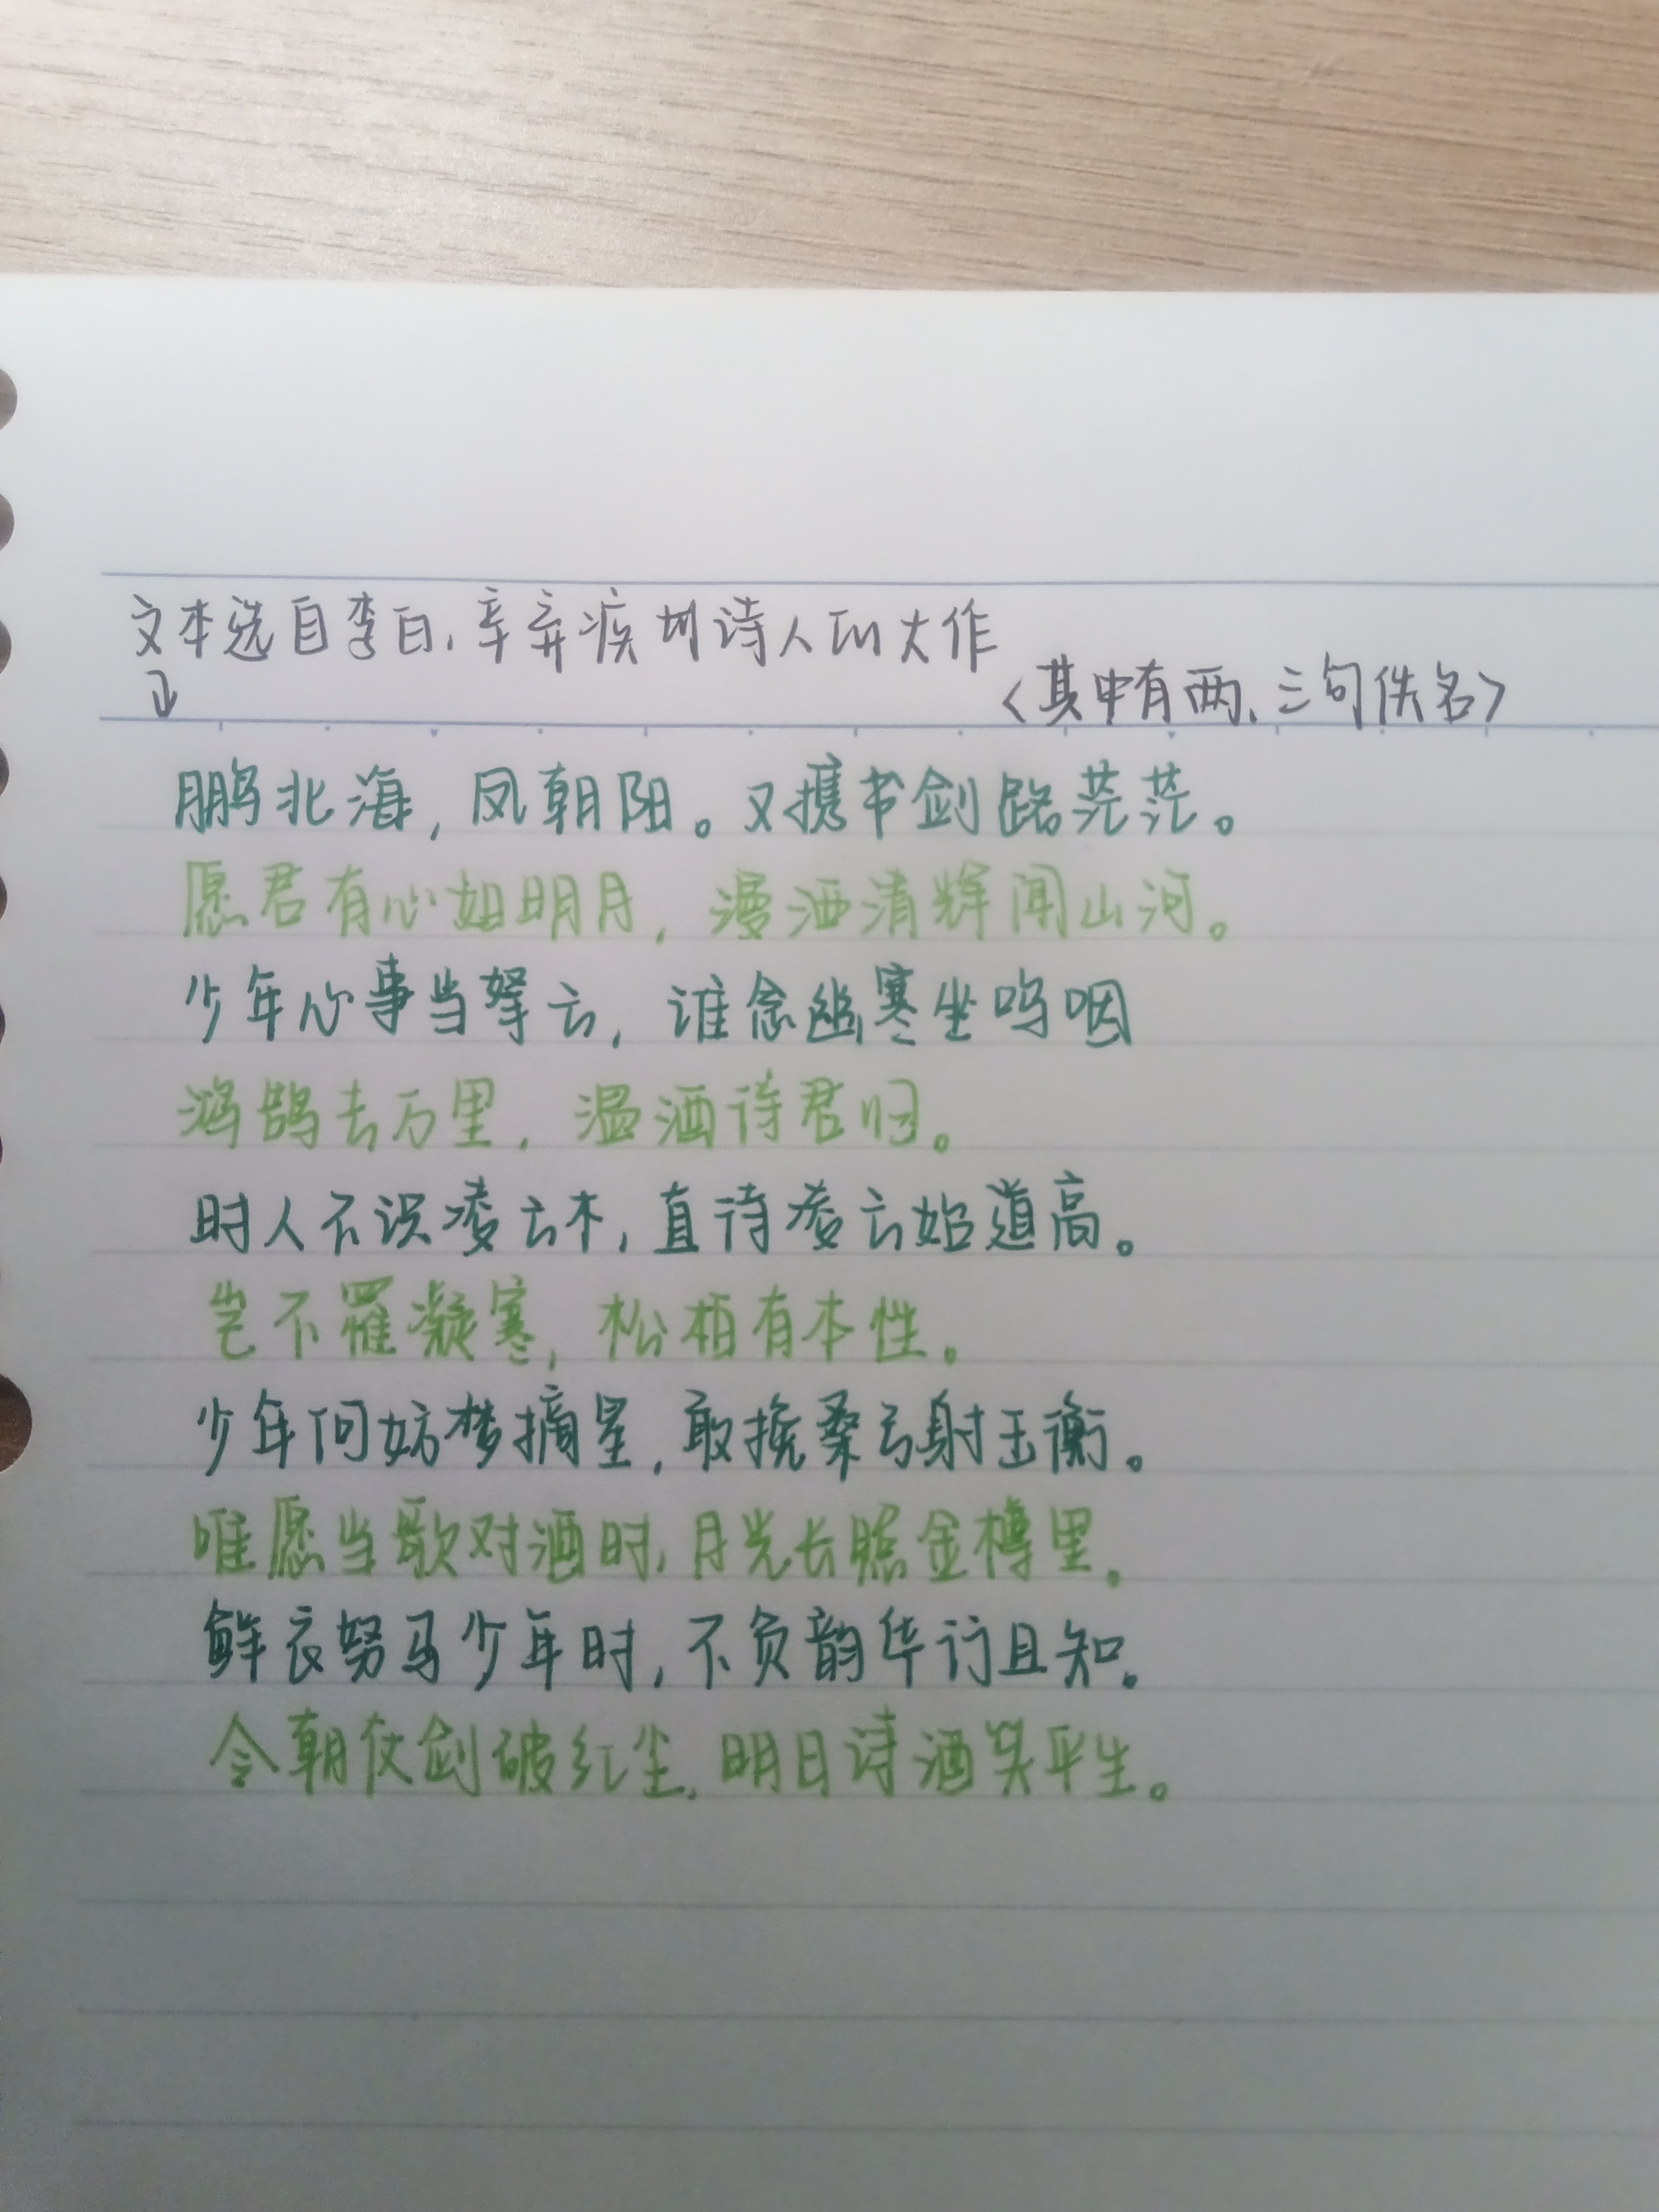 文本选自李白、辛弃疾 诗人的大作
↓
<其中有两、三句佚名>
鹏北海,凤朝阳。又携书剑路茫茫。
愿君有心如明月,漫洒清辉闻山河。
少年心事当拏云,谁念幽寒坐呜呃
鸿鹄去万里,温酒待君归。
时人不识凌云木,直待凌云始道高。
岂不罹凝寒,松柏有本性。
少年何妨梦摘星,敢挽桑弓射玉衡。
唯愿当歌对酒时,月光长照金樽里。
鲜衣努马少年时,不负韵华行且知。
今朝仗剑破红尘,明日诗酒笑平生。